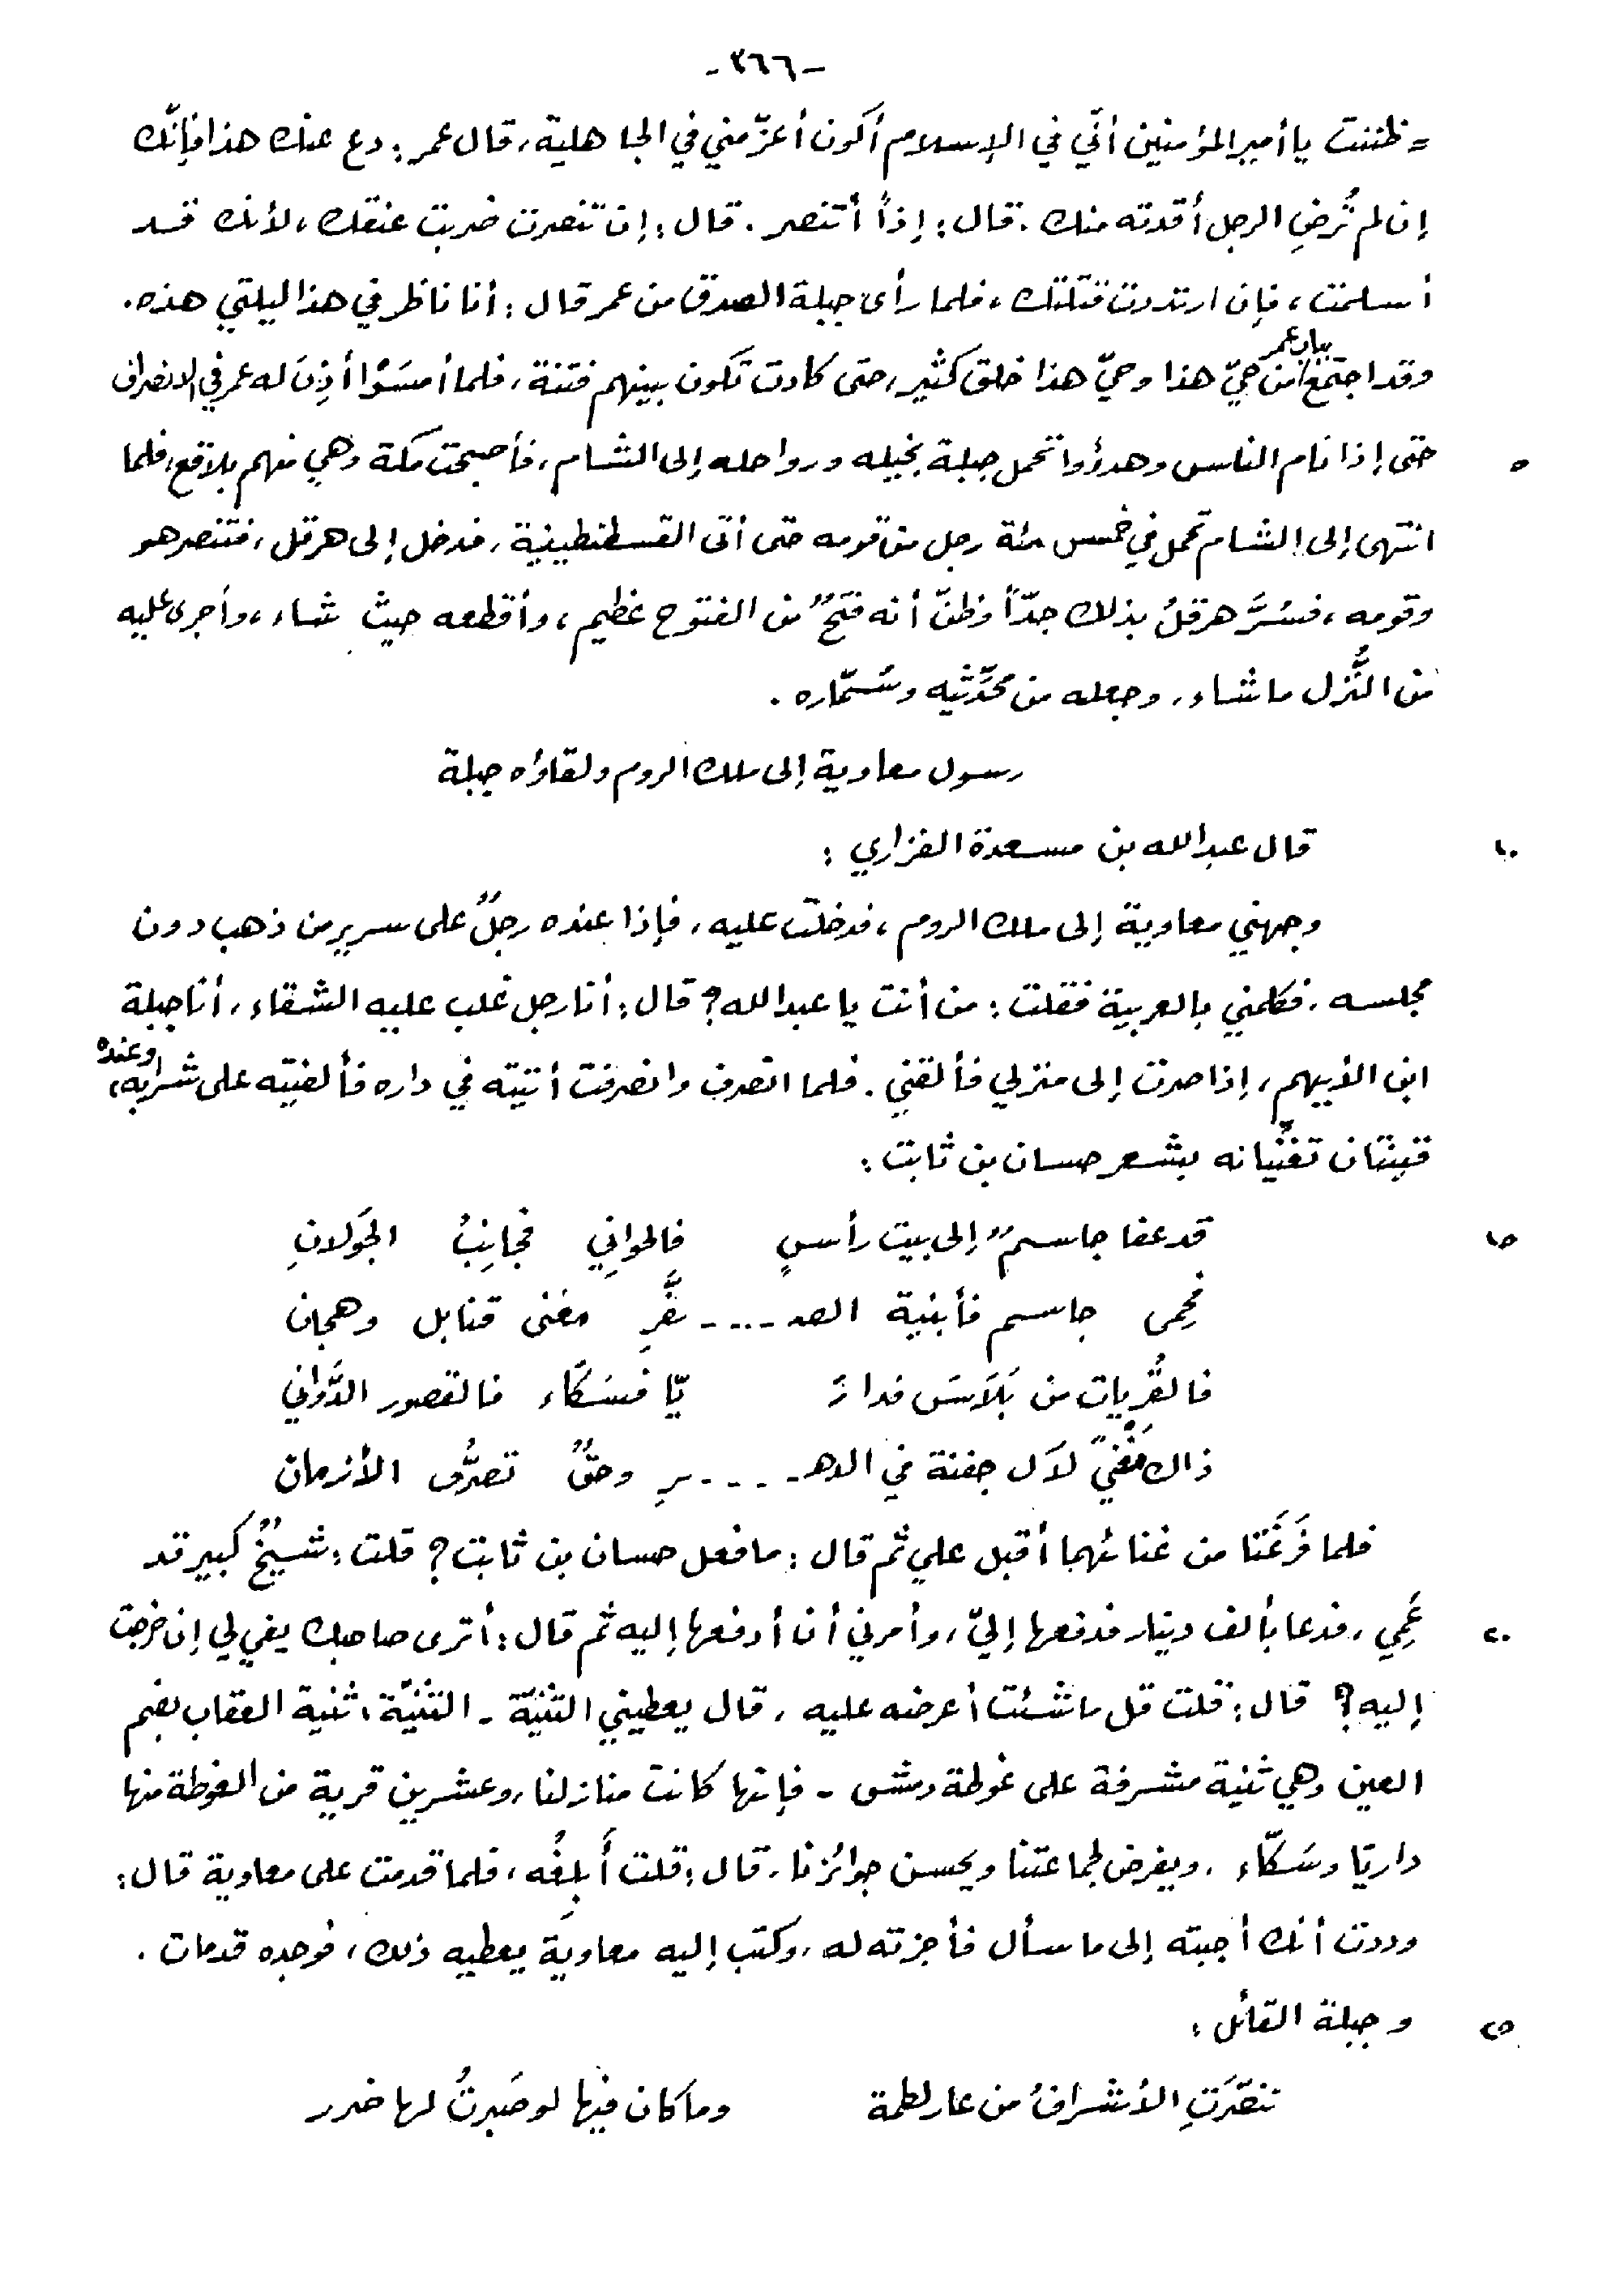 -٣٦٦-
= ظننت يا أمير المؤمنين أنّي في الإسلام أكون أعزّ مني في الجاهلية، قال عمر: دع عنك هذا فإنّك
إن لم تُرضِ الرجل أقدته منك. قال: إذاً أتنصر. قال: إن تنصرت ضربت عنقك، لأنك قد
أسلمت، فإن ارتددت قتلتك، فلما رأى جبلة الصدق من عمر قال: أنا ناظر في هذا ليلتي هذه.
وقد اجتمع بباب عمر من حيّ هذا وحيّ هذا خلق كثير، حتى كادت تكون بينهم فتنة، فلما أمسَوْا أذِنَ له عمر في الانصراف
حتى إذا نام الناس وهدؤوا تحمل جبلة بخيله ورواحله إلى الشام، فأصبحت مكة وهي منهم بلاقع، فلما
٥
انتهى إلى الشام تحمل في خمس مئة رجل من قومه حتى أتى القسطنطينية، فدخل إلى هرقل، فتنصر هو
وقومه، فسُرَّ هرقلُ بذلك جدّاً وظنّ أنه فتحٌ من الفتوح عظيم، وأقطعه حيث شاء، وأجرى عليه
من النُّزل ما شاء، وجعله من محدّثيه وسُمّاره.
رسول معاوية إلى ملك الروم ولقاؤه جبلة
قال عبد الله بن مسعدة الفزاري:
١٠
وجهني معاوية إلى ملك الروم، فدخلت عليه، فإذا عنده رجلٌ على سرير من ذهب دون
مجلسه، فكلمني بالعربية فقلت: من أنت يا عبد الله؟ قال: أنا رجل غلب عليه الشقاء، أنا جبلة
ابن الأيهم، إذا صرت إلى منزلي فألقني. فلما انصرف وانصرفت أتيته في داره فألفيته على شرابه، وعنده
قينتان تغنّيانه بشعر حسان بن ثابت:
قد عفا جاسمٌ إلى بيت رأسٍ فالحواني فجانِبُ الجَولانِ
١٥
فحِمى جاسم فأبنية الصـ---ـفَّرِ مغنى قنابل وهجان
فالقُريات من بَلَاسَ فدارَ يّا فسَكّاء فالقصور الدَّواني
ذاك مَغْنىً لآل جفنة في الدهـ----ـرِ وحقٌ تصرُّف الأزمان
فلما فَرَغَتا من غنائهما أقبل علي ثم قال: ما فعل حسان بن ثابت؟ قلت: شيخٌ كبير قد
عَمِي، فدعا بألف دينار فدفعها إليّ، وأمرني أن أدفعها إليه ثم قال: أترى صاحبك يفي لي إن خرجت
٢٠
إليه؟ قال: قلت قل ما شئت أعرضه عليه، قال يعطيني الثنيّة - الثنيّة، ثنية العقاب بضم
العين وهي ثنية مشرفة على غوطة دمشق - فإنها كانت منازلنا، وعشرين قرية من الغوطة منها
داريّا وسَكّاء، ويفرض لجماعتنا ويحسن جوائزنا، قال: قلت أُبلِغُه، فلما قدمت على معاوية قال:
وددت أنك أجبته إلى ما سأل فأجزته له، وكتب إليه معاوية يعطيه ذلك، فوجده قد مات.
وجبلة القائل:
٢٥
تنصّرَتِ الأشرافُ من عار لطمة وما كان فيها لو صَبرتُ لها ضرر